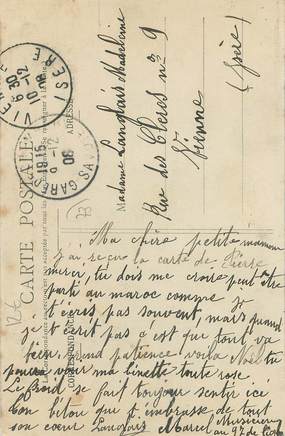 Madame Langlais Madeleine
Rue des Clercs n° 9
Vienne
(Isère)
CARTE POSTALE
ADRESSE
CORRESPONDANCE
VIENNE
6 30
10-12
ISERE
GARE
Ma chère petite maman
j'ai reçu la carte de Pierre
merci, tu dois me croire peut être
parti au maroc comme je
t'écris pas souvent, mais quand
je t'écrit pas c'est que tout va
bien, prend patience voila Noël tu
pourra voir ma binette toute rose
Le froid se fait toujour sentir ici
Ton fiton que t'embrasse de tout
son coeur Langlais Marcel Musicien
au 97 de ligne